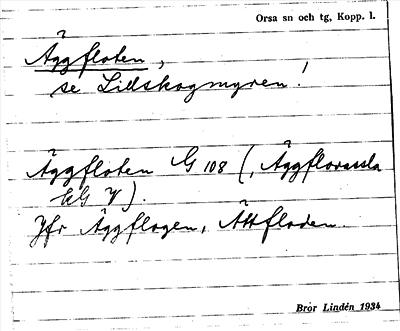 Orsa sn och tg, Kopp. l.
Äggfloten,
se Lillskogmyren!
Äggfloten G 108 (, Äggflorässla
EG V).
Jfr Äggflogen, Ättfloden.
Bror Lindén 1934